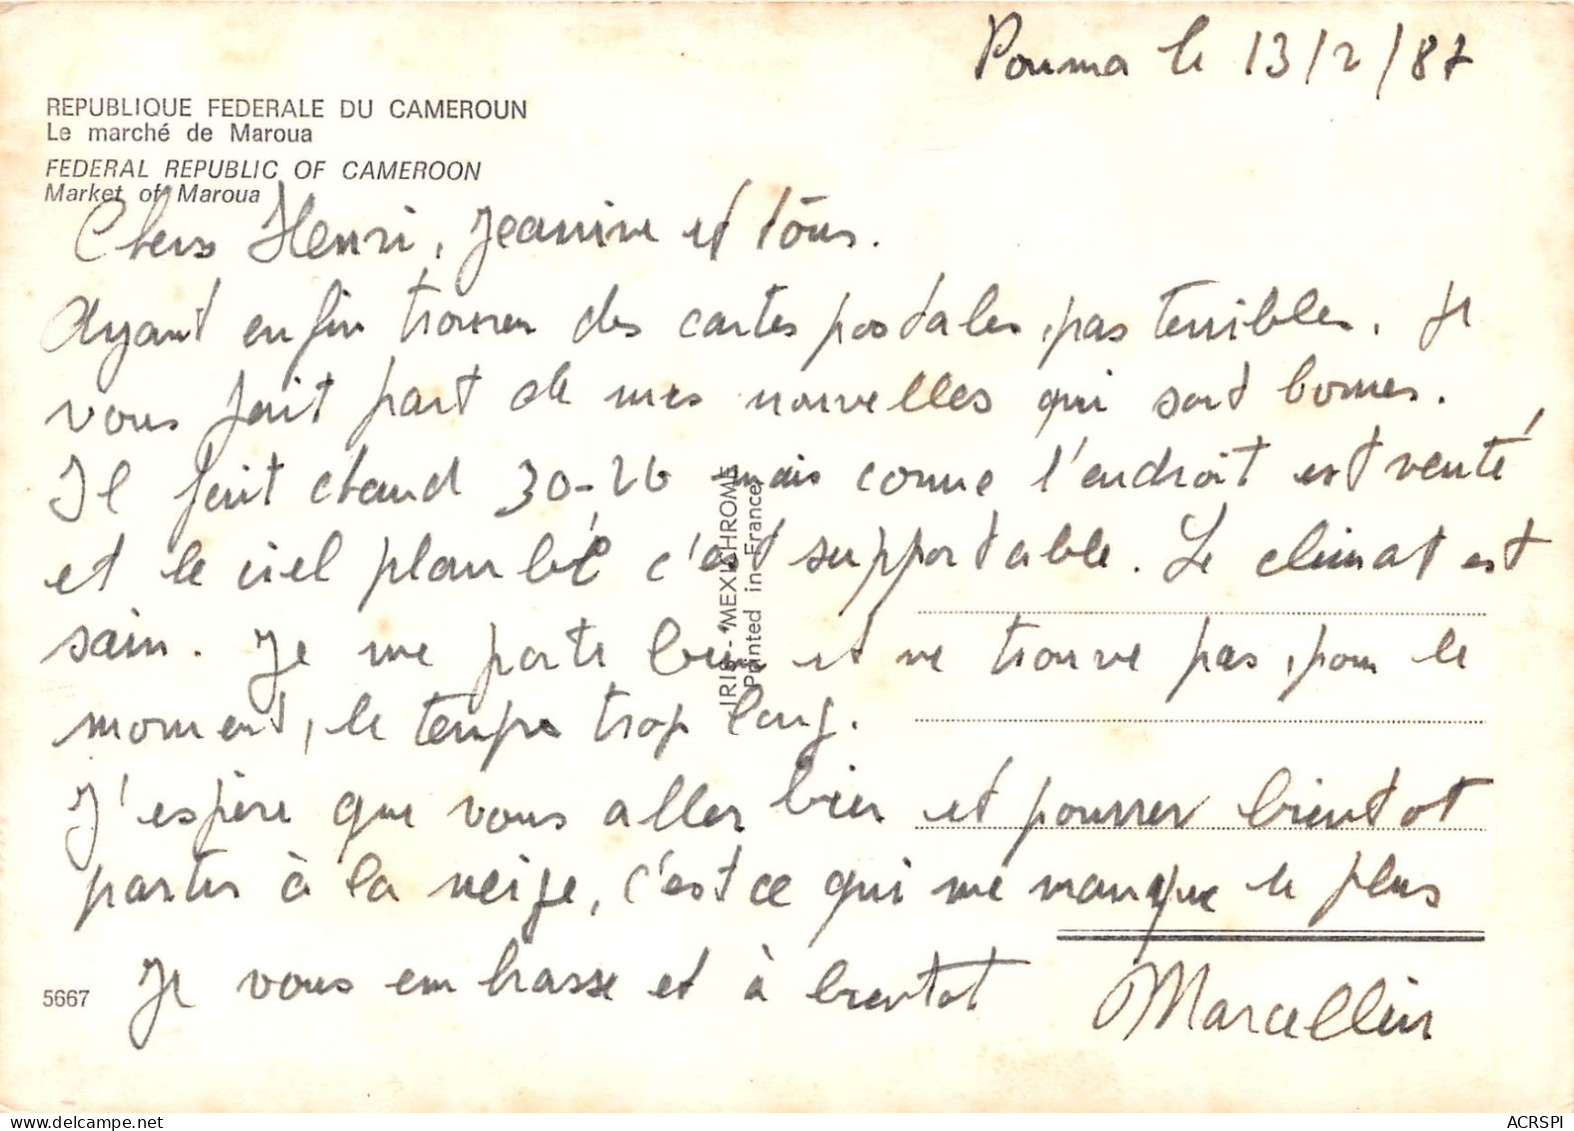 Pouma le 13/2/87
REPUBLIQUE FEDERALE DU CAMEROUN
Le marché de Maroua
FEDERAL REPUBLIC OF CAMEROON
Market of Maroua
Chers Henri, Jeanine et tous.
Ayant enfin trouver des cartes postales, pas terribles. Je
vous fait part de mes nouvelles qui sont bonnes.
Il fait chaud 30-26 mais comme l'endroit est venté,
et le ciel plombé c'est supportable. Le climat est
sain. Je me porte bien et ne trouve pas, pour le
moment, le temps trop long.
J'espère que vous aller bien et pourrer bientot
partir à la neige, c'est ce qui me manque le plus
Je vous embrasse et à bientot
Marcellin
IRIS - MEXICHROME
Printed in France
5667
ACRSPI